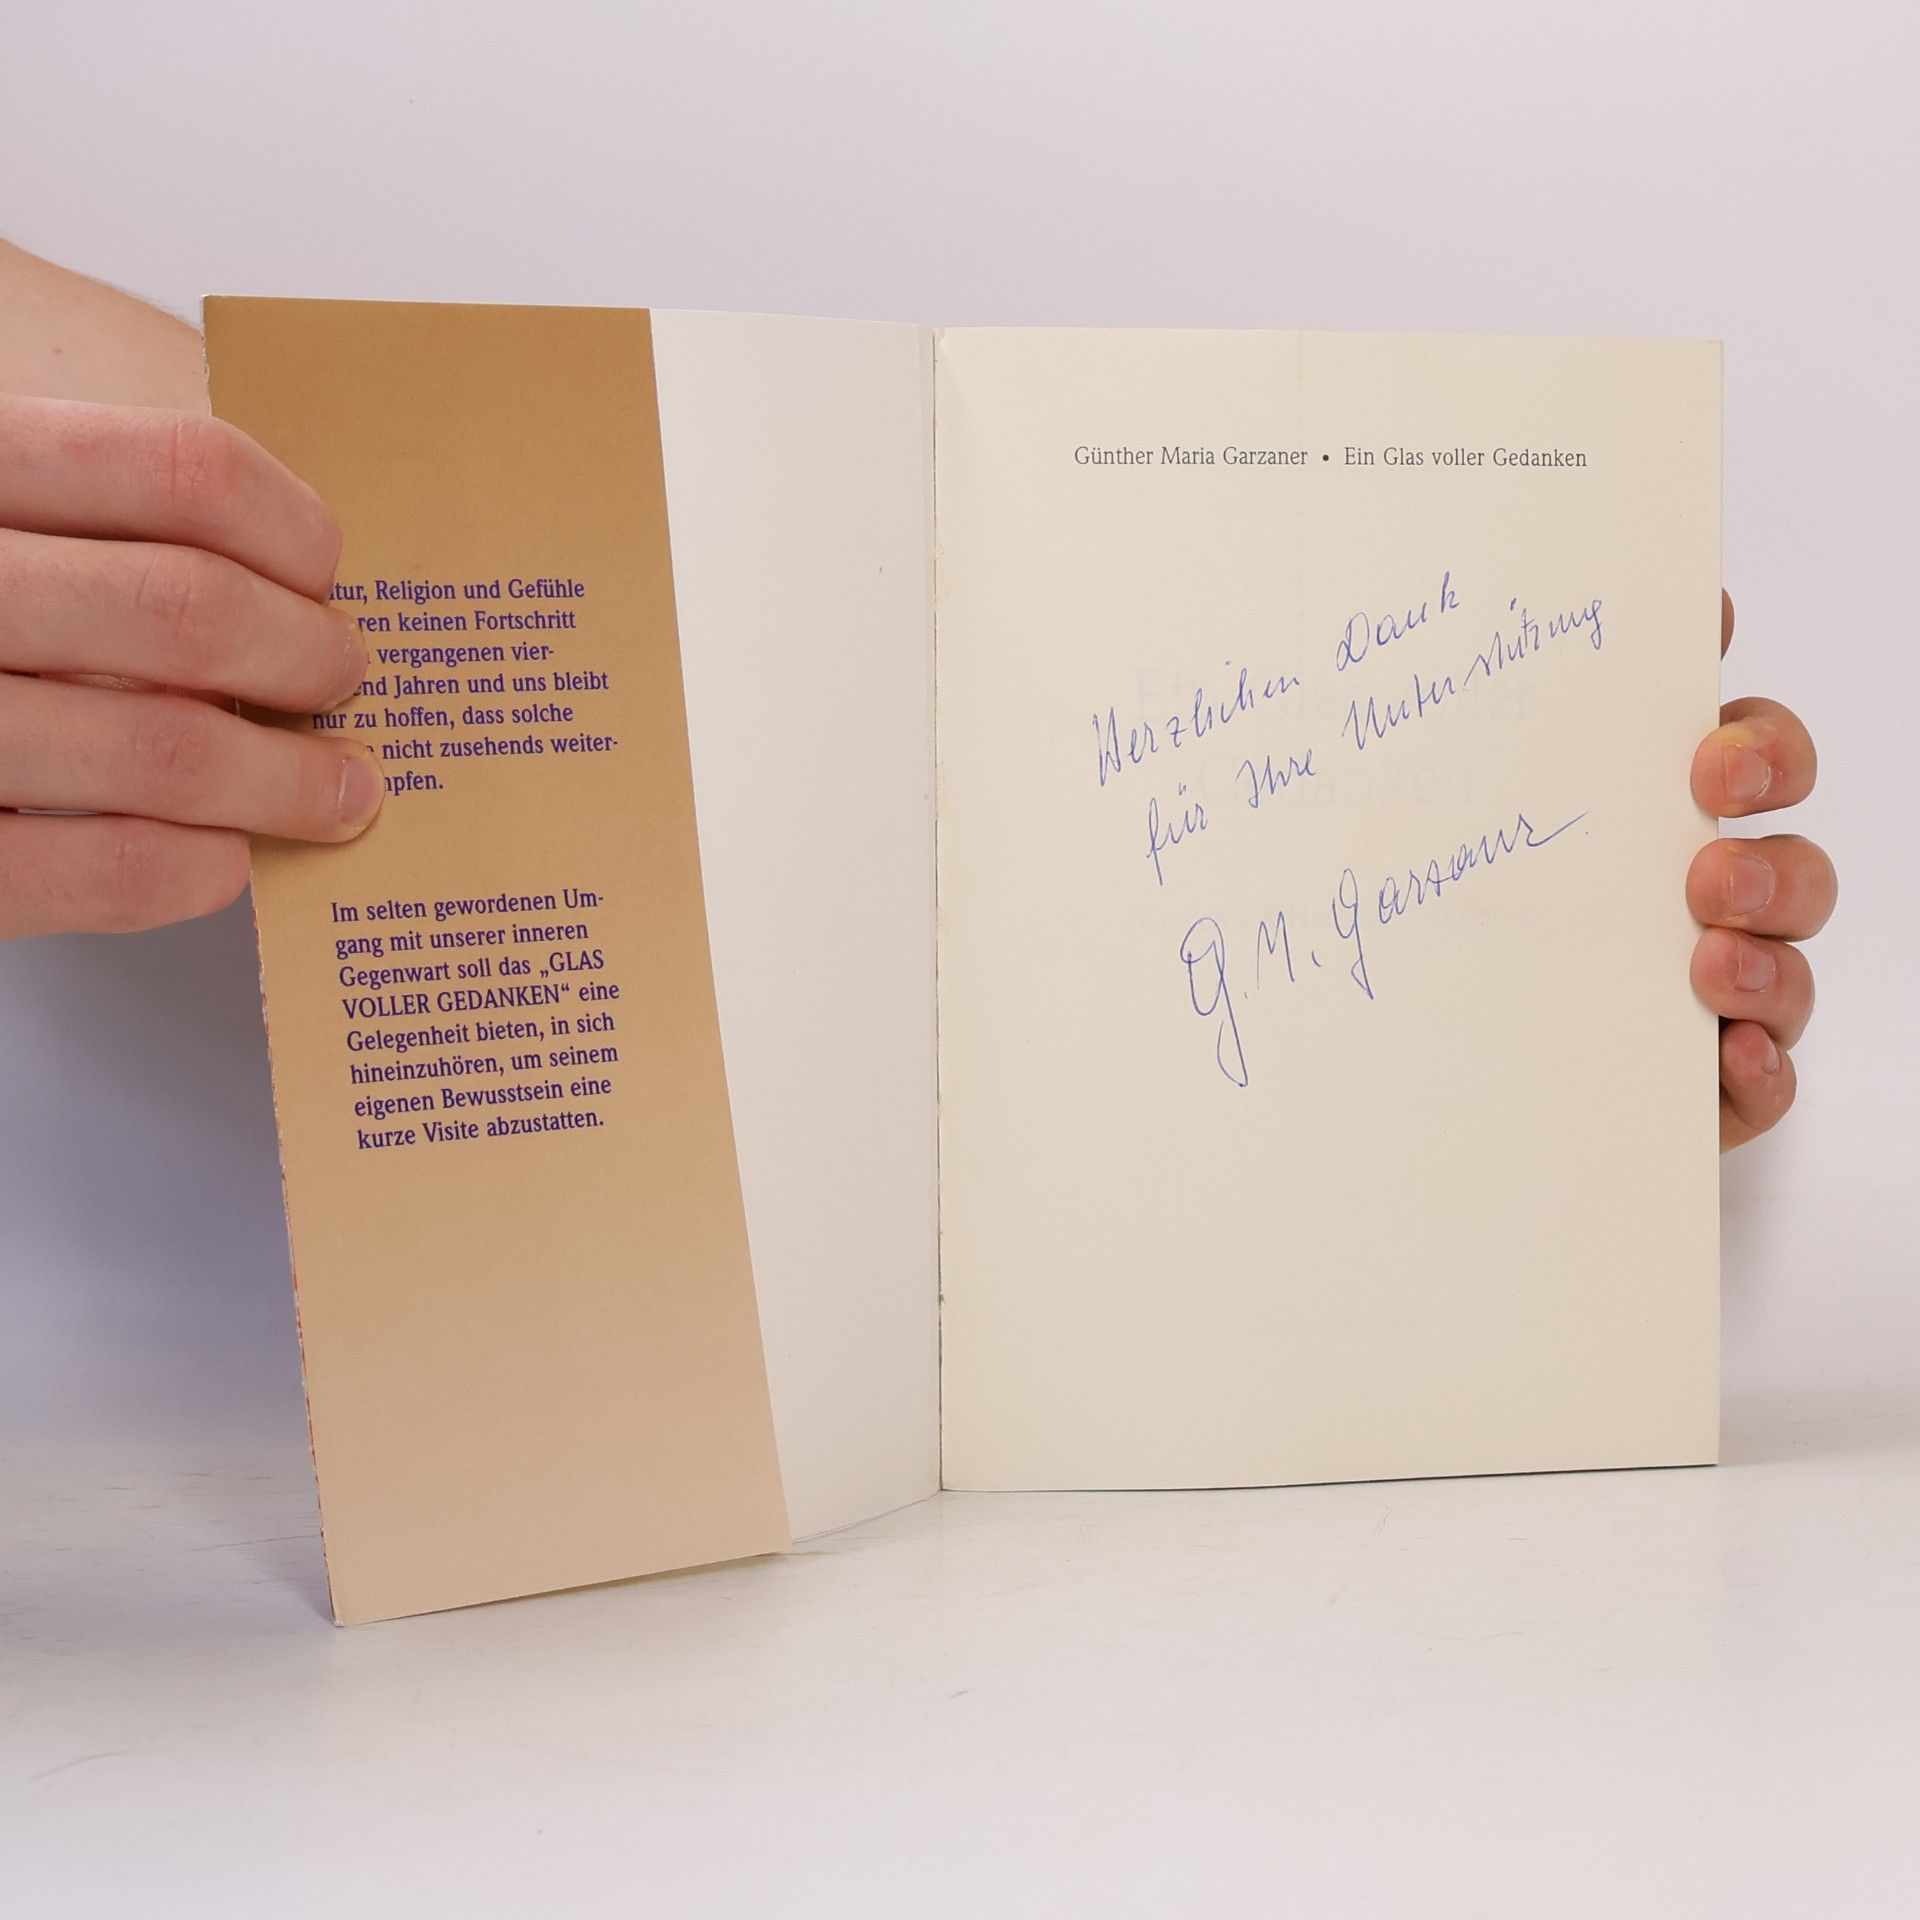 Religion und Gefühle
keinen Fortschritt
vergangenen vier-
Jahren und uns bleibt
nur zu hoffen, dass solche
nicht zusehends weiter-
Im selten gewordenen Um-
gang mit unserer inneren
Gegenwart soll das „GLAS
VOLLER GEDANKEN“ eine
Gelegenheit bieten, in sich
hineinzuhören, um seinem
eigenen Bewusstsein eine
kurze Visite abzustatten.
Günther Maria Garzaner • Ein Glas voller Gedanken
Herzlichen Dank
für Ihre Unterstützung
G. M. Garzaner